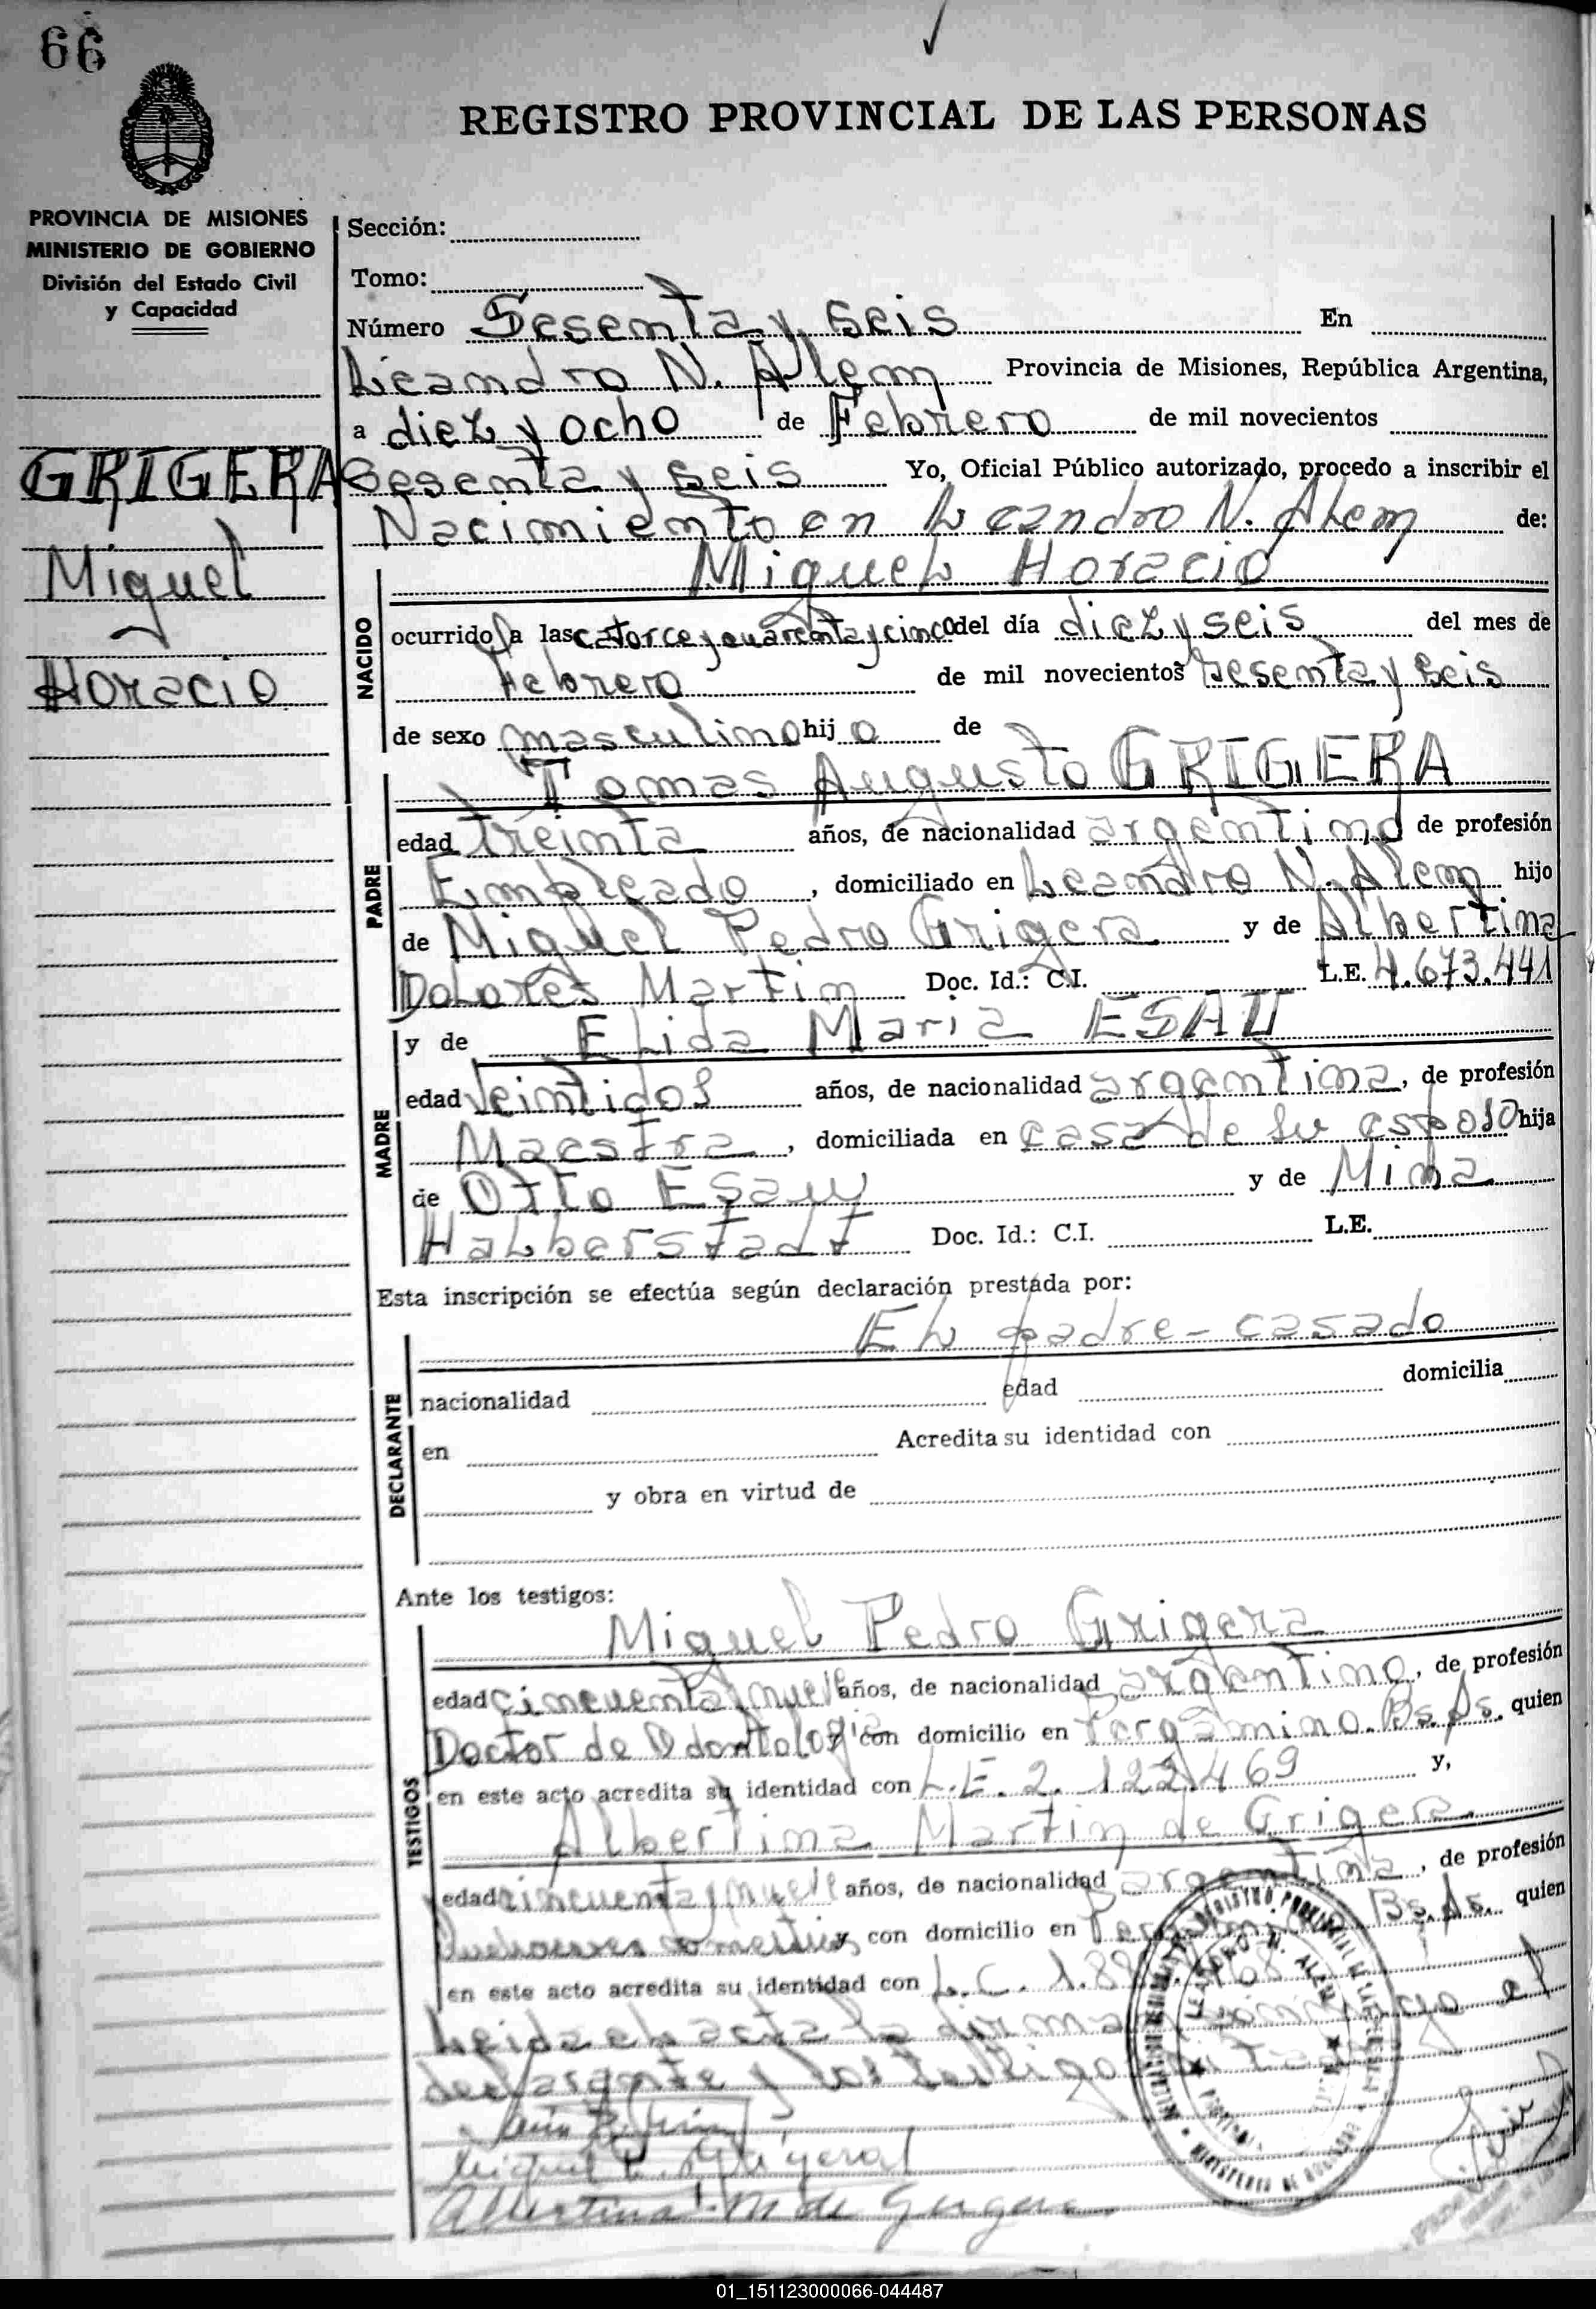 66
REGISTRO PROVINCIAL DE LAS PERSONAS
PROVINCIA DE MISIONES
MINISTERIO DE GOBIERNO
División del Estado Civil
y Capacidad
GRIGERA
Miguel
Horacio
Sección:
Tomo:
Número Sesenta y seis En
Leandro N. Alem Provincia de Misiones, República Argentina,
a diez y ocho de Febrero de mil novecientos
Sesenta y seis Yo, Oficial Público autorizado, procedo a inscribir el
Nacimiento en Leandro N. Alem de:
Miguel Horacio
NACIDO
ocurrido a las catorce y cuarenta y cinco del día diez y seis del mes de
Febrero de mil novecientos sesenta y seis
de sexo masculino hijo de
Tomas Augusto GRIGERA
PADRE
edad treinta años, de nacionalidad argentino de profesión
Empleado, domiciliado en Leandro N. Alem hijo
de Miguel Pedro Grigera y de Albertina
Dolores Martin Doc. Id.: C.I. L.E. 4.673.441
y de Elida Maria ESAU
MADRE
edad veintidos años, de nacionalidad argentina, de profesión
Maestra, domiciliada en casa de su esposo hija
de Otto Esau y de
Halberstadt Doc. Id.: C.I. L.E.
Esta inscripción se efectúa según declaración prestada por:
El padre - casado
DECLARANTE
nacionalidad edad domicilia
en Acredita su identidad con
y obra en virtud de
Ante los testigos:
TESTIGOS
Miguel Pedro Grigera
edad cincuenta y nueve años, de nacionalidad argentino, de profesión
Doctor de Odontologia con domicilio en Pergamino. Bs. As. quien
en este acto acredita su identidad con L.E. 2.122.469 y,
Albertina Martin de Grigera
edad cincuenta y nueve años, de nacionalidad argentina, de profesión
con domicilio en Bs. As. quien
en este acto acredita su identidad con L.C.
Leida el acta la firman conmigo el
declarante y los testigos
Albertina M de Grigera
01_151123000066-044487